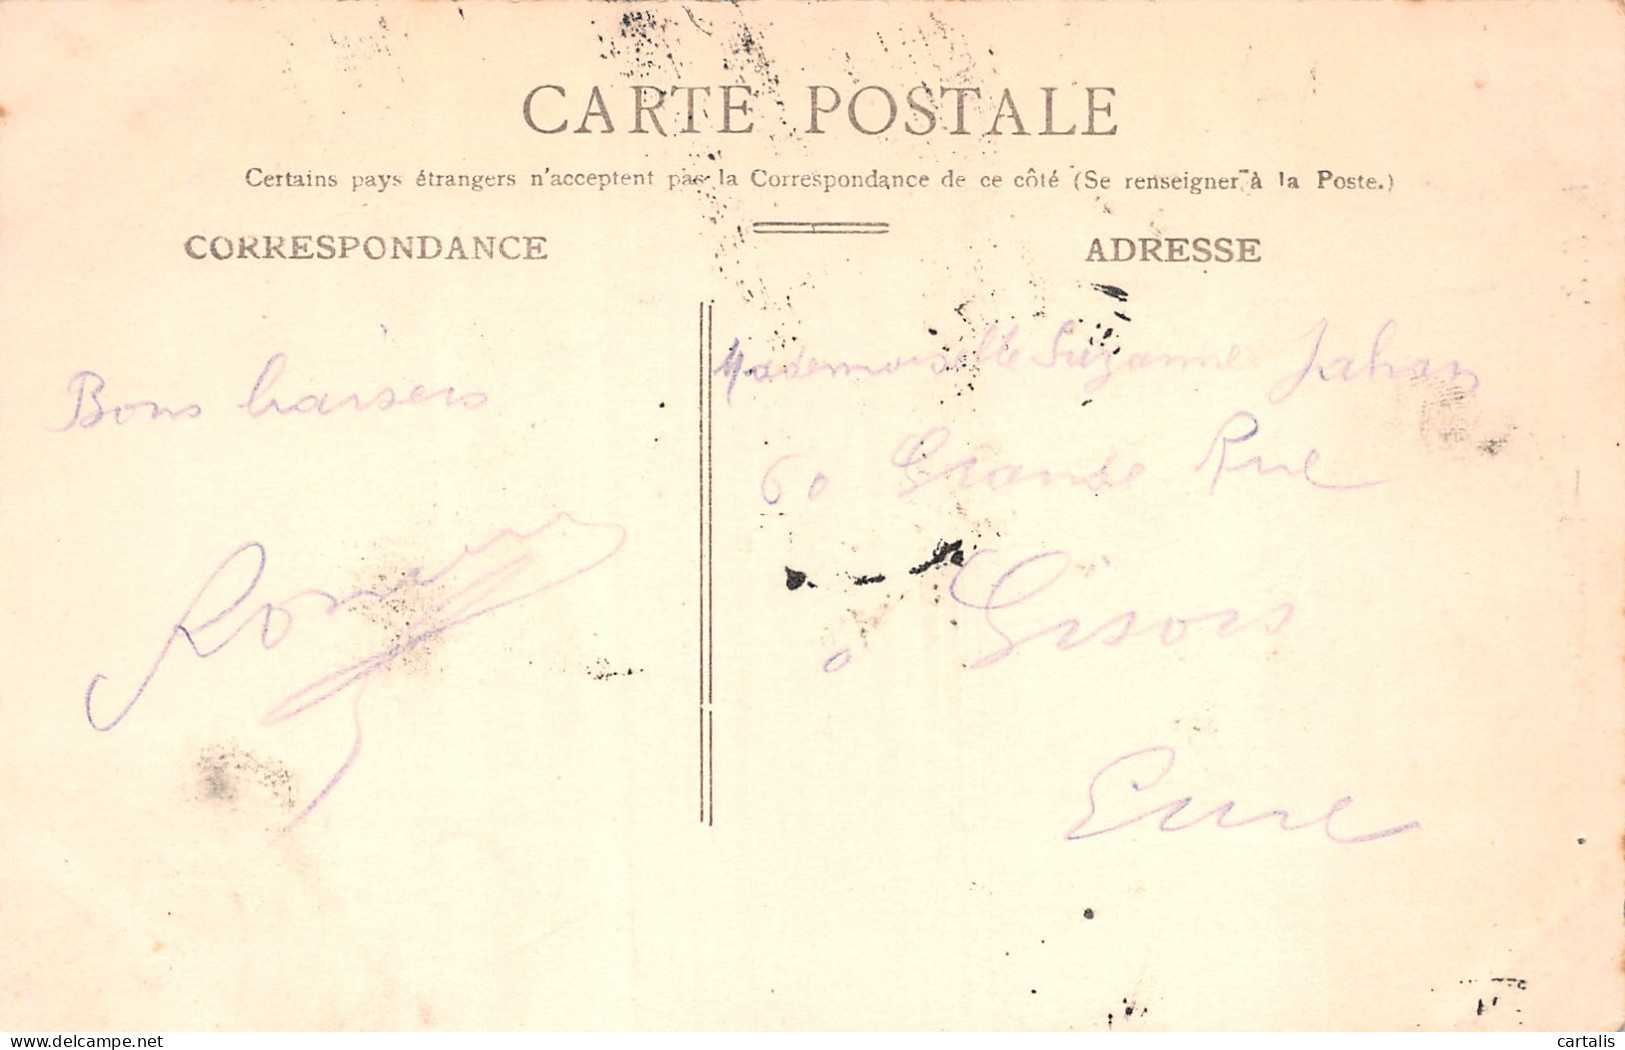 CARTE POSTALE
Certains pays étrangers n'acceptent pas la Correspondance de ce côté (Se renseigner à la Poste.)
CORRESPONDANCE
ADRESSE
Bons baisers
Mademoiselle Suzanne Jahan
60 Grande Rue
à Gisors
Eure
delcampe.net
cartalis